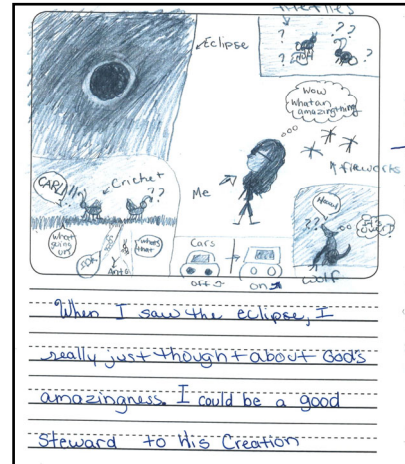 Eclipse
? ? ? ?
Wow
what an
amazing thing
fireworks
Me
Cricket
? ?
what's
that
Ants
Cars
off
on
Howl
? ?
Wolf
When I saw the eclipse, I
really just thought about God's
amazingness. I could be a good
steward to His Creation